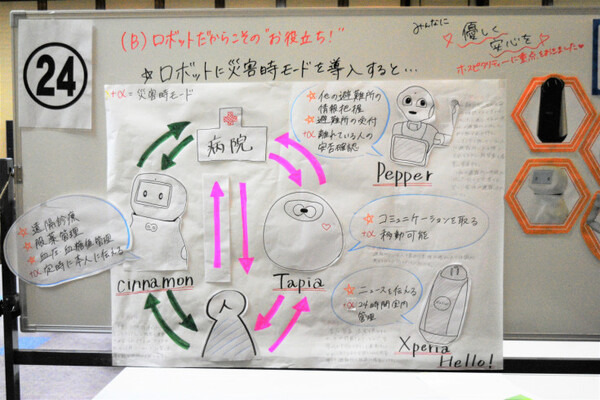 24
(B) ロボットだからこその"お役立ち!"
みんなに
優しく
安心を
ホスピタリティーに重点をおきました
☆ロボットに災害時モードを導入すると…
+α = 災害時モード
病院
☆他の避難所の
情報把握
☆避難所の受付
+α 離れている人の
安否確認
Pepper
☆遠隔診療
☆服薬管理
☆血圧、血糖値管理
+α 定時に本人に伝える
cinnamon
Tapia
☆コミュニケーションを取る
+α 移動可能
人
☆ニュースを伝える
+α 24時間室内
管理
Xperia
Hello!